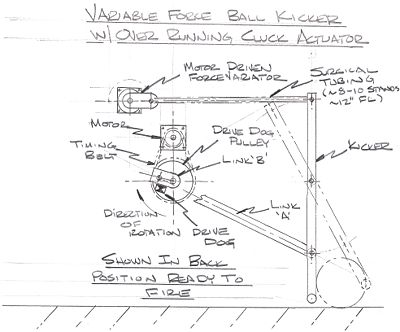 VARIABLE FORCE BALL KICKER
W/ OVER RUNNING CLUCK ACTUATOR
MOTOR DRIVEN
FORCE VARIATOR
SURGICAL
TUBING
(~8-10 STANDS
~12" FL)
MOTOR
DRIVE DOG
PULLEY
KICKER
TIMING
BELT
LINK 'B'
LINK
'A'
DIRECTION
OF
ROTATION
DRIVE
DOG
SHOWN IN BACK
POSITION READY TO
FIRE